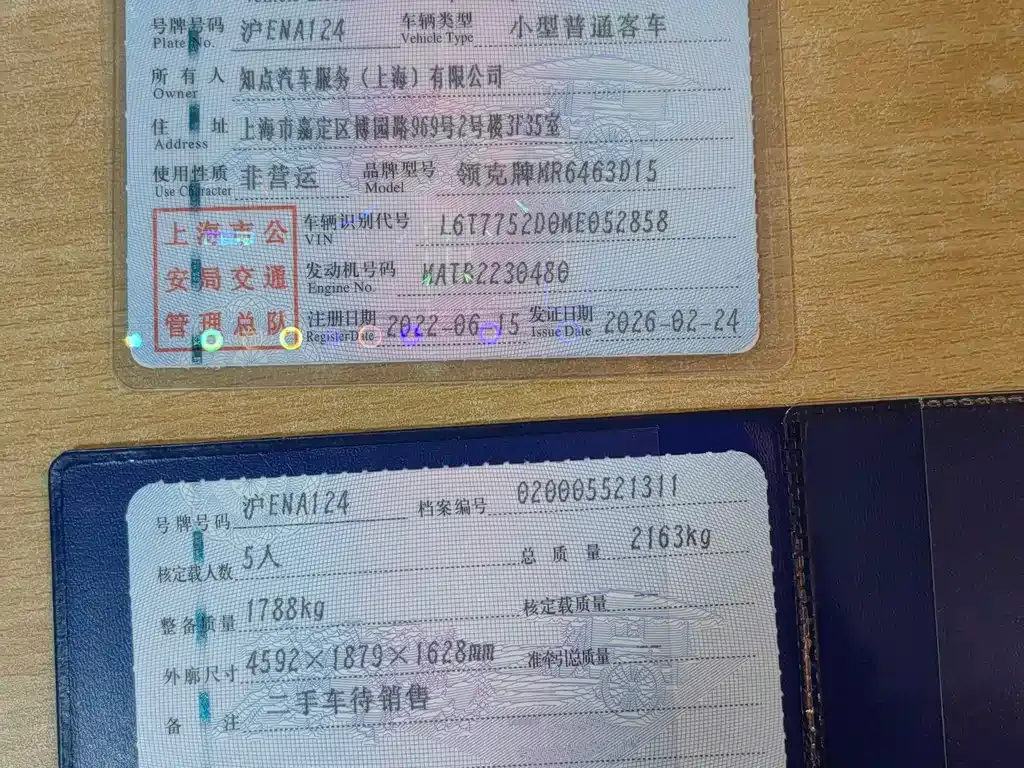 号牌号码 Plate No. 沪ENA124 车辆类型 Vehicle Type 小型普通客车
所有人 Owner 知点汽车服务（上海）有限公司
住址 Address 上海市嘉定区博园路969号2号楼3F35室
使用性质 Use Character 非营运 品牌型号 Model 领克牌MR6463D15
上海市公安局交通管理总队
车辆识别代号 VIN L6T7752D0ME052858
发动机号码 Engine No. MATB2230480
注册日期 Register Date 2022-06-15 发证日期 Issue Date 2026-02-24
号牌号码 沪ENA124 档案编号 020005521311
核定载人数 5人 总质量 2163kg
整备质量 1788kg 核定载质量 --
外廓尺寸 4592×1879×1628mm 准牵引总质量 --
备注 二手车待销售